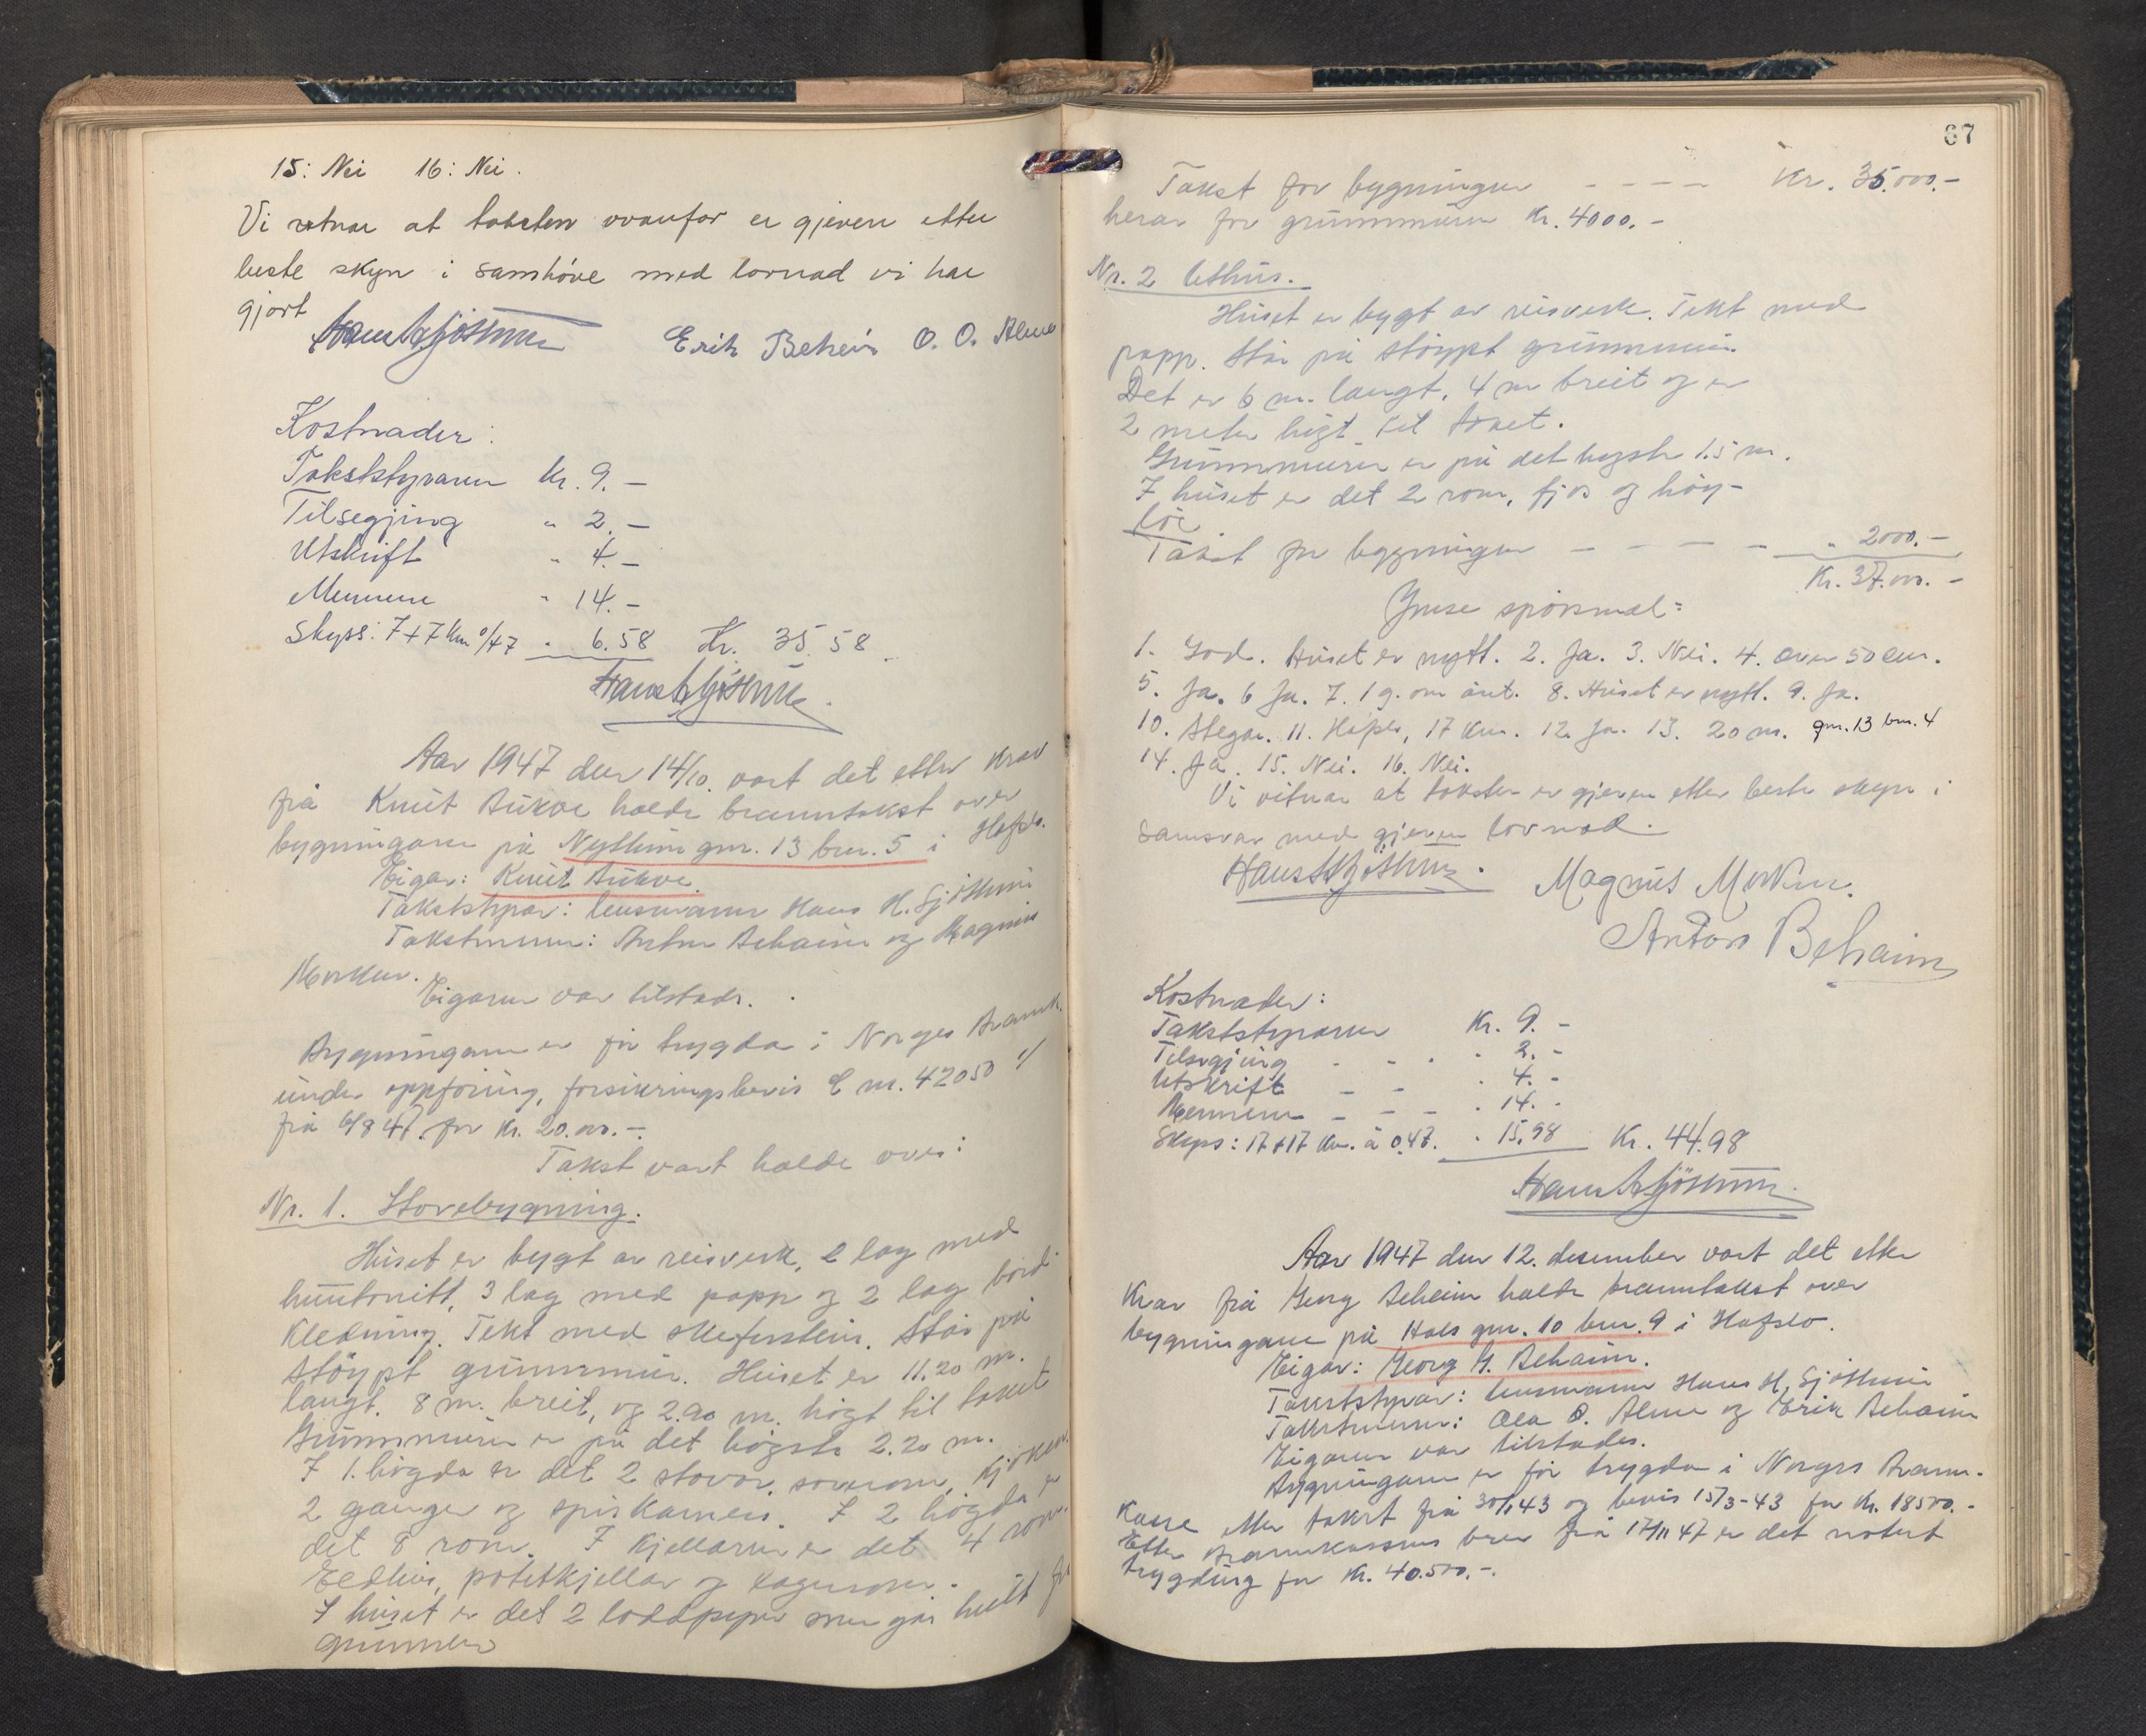 15: Nei 16: Nei.
Vi vitnar at taksten ovanfor er gjeven etter
beste skyn i samhøve med lovnad vi har
gjort
Hans H Sjøthun Erik Beheim O. O. Alme
Kostnader:
Takststyraren Kr. 9.–
Tilsegjing " 2.–
Utskrift " 4.–
Mennene " 14.–
Skyss: 7+7 km 0/47 " 6.58 Kr. 35.58
Hans H Sjøthun.
Aar 1947 den 14/10. vart det etter krav
frå Knut Bukve halde branntakst over
bygningane på Nythun gnr. 13 bnr. 5 i Hafslo.
Eigar: Knut Bukve.
Takststyrar: lensmann Hans H. Sjøthun
Takstmenn: Anton Beheim og Magnus
Morken.
Eigaren var tilstade.
Bygningane er før trygda i Norges Brannk.
under oppføring, forsikringsbevis C nr. 42050
frå 6/8 47. for kr. 20.000.–.
Takst vart halde over:
Nr. 1. Stovebygning.
Huset er bygt av reisverk, 2 lag med
huntonitt, 3 lag med papp og 2 lag bord
kledning. Tekt med skeferstein. Står på
støypt grunnmur. Huset er 11.20 m.
langt. 8 m. breit, og 2.90 m. høgt til taket
Grunnmuren er på det høgste 2.20 m.
I 1. høgda er det 2 stovor, soverom, kjøken.
2 ganger og spiskamers. I 2 høgda er
det 8 rom. I kjellaren er det 4 rom.
Eldhus, potetkjellar og lagerrom.
I huset er det 2 loddpiper som går heilt frå
grunnen
67
Takst for bygningen – – – – Kr. 35.000.–
herav for grunnmuren kr. 4000.–
Nr. 2 Uthus.
Huset er bygt av reisverk. Tekt med
papp. Står på støypt grunnmur.
Det er 6 m. langt, 4 m breit og er
2 meter høgt til taket.
Grunnmuren er på det høgste 1.5 m.
I huset er det 2 rom, fjos og høy-
løe
Takst for bygningen – – – – " 2000.–
Kr. 37.000.–
Ymse spørsmål:
1. God. Huset er nytt. 2. Ja. 3. Nei. 4. over 50 cm.
5. Ja. 6 Ja. 7. 1 g. om året. 8. Huset er nytt. 9. Ja.
10. Stegar. 11. Hafslo, 17 km. 12. Ja. 13. 20 m. gnr. 13 bnr. 4
14. Ja. 15. Nei. 16. Nei.
Vi vitnar at taksten er gjeven etter beste skyn i
samsvar med gjeven lovnad.
Hans H Sjøthun. Magnus Morken.
Anton Beheim
Kostnader:
Takststyraren Kr. 9.–
Tilsegjing – – " 2.–
Utskrift – – " 4.–
Mennene – – – " 14.–
Skyss: 17+17 km. à 0.47. " 15.98 Kr. 44.98
Hans H Sjøthun.
Aar 1947 den 12. desember vart det etter
krav frå Georg Beheim halde branntakst over
bygningane på Hals gnr. 10 bnr. 9 i Hafslo.
Eigar: Georg G. Beheim.
Takststyrar: lensmann Hans H. Sjøthun
Takstmenn: Ola O. Alme og Erik Beheim
Eigaren var tilstades.
Bygningane er før trygda i Norges Brann-
kasse etter takst frå 30/1 43 og bevis 15/3-43 for kr. 18500.–
Etter Brannkassens brev frå 17/11 47 er det notert
trygding for kr. 40.500.–.